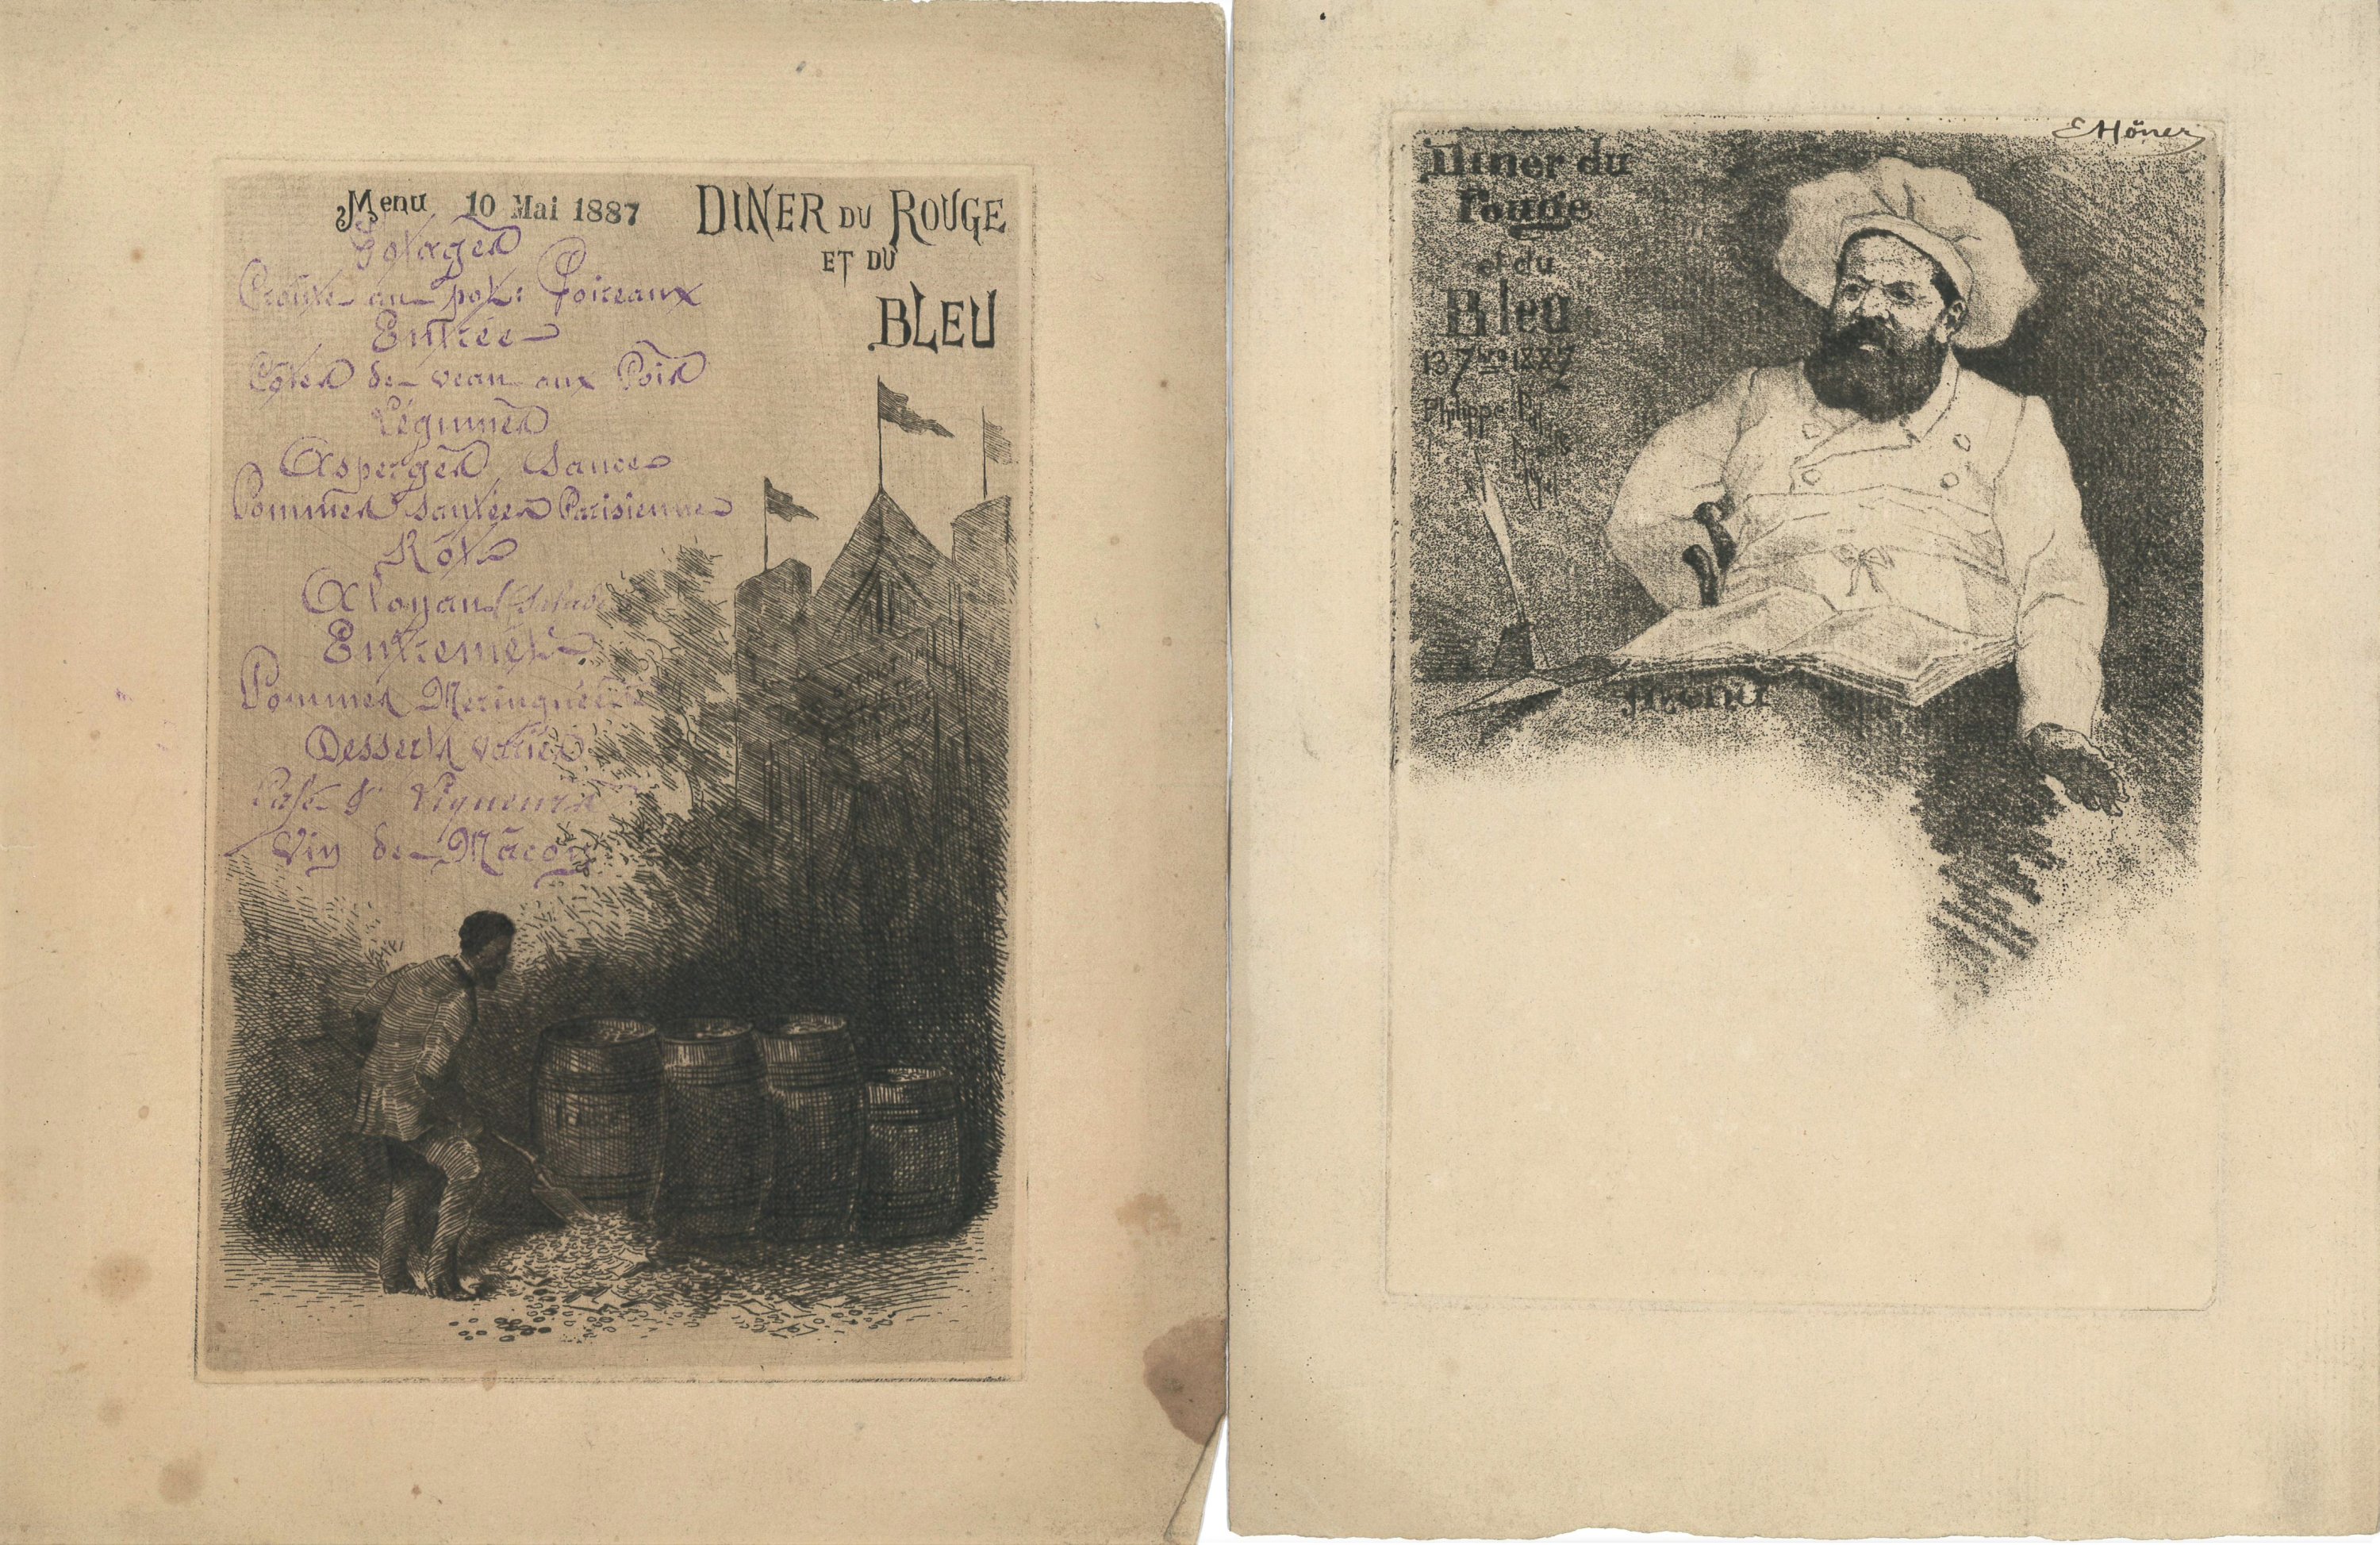 Menu 10 Mai 1887
DINER DU ROUGE
ET DU
BLEU
Potages
Croûte au pot: Poireaux
Entrée
Côtes de veau aux Pois
Légumes
Asperges Sauce
Pommes sautées Parisienne
Rôt
Aloyau Salade
Entremet
Pommes Meringuées
Desserts variés
Café & Liqueurs
Vin de Mâcon
E Höner
Diner du
Rouge
et du
Bleu
13 7bre 1887
Philippe
Menu